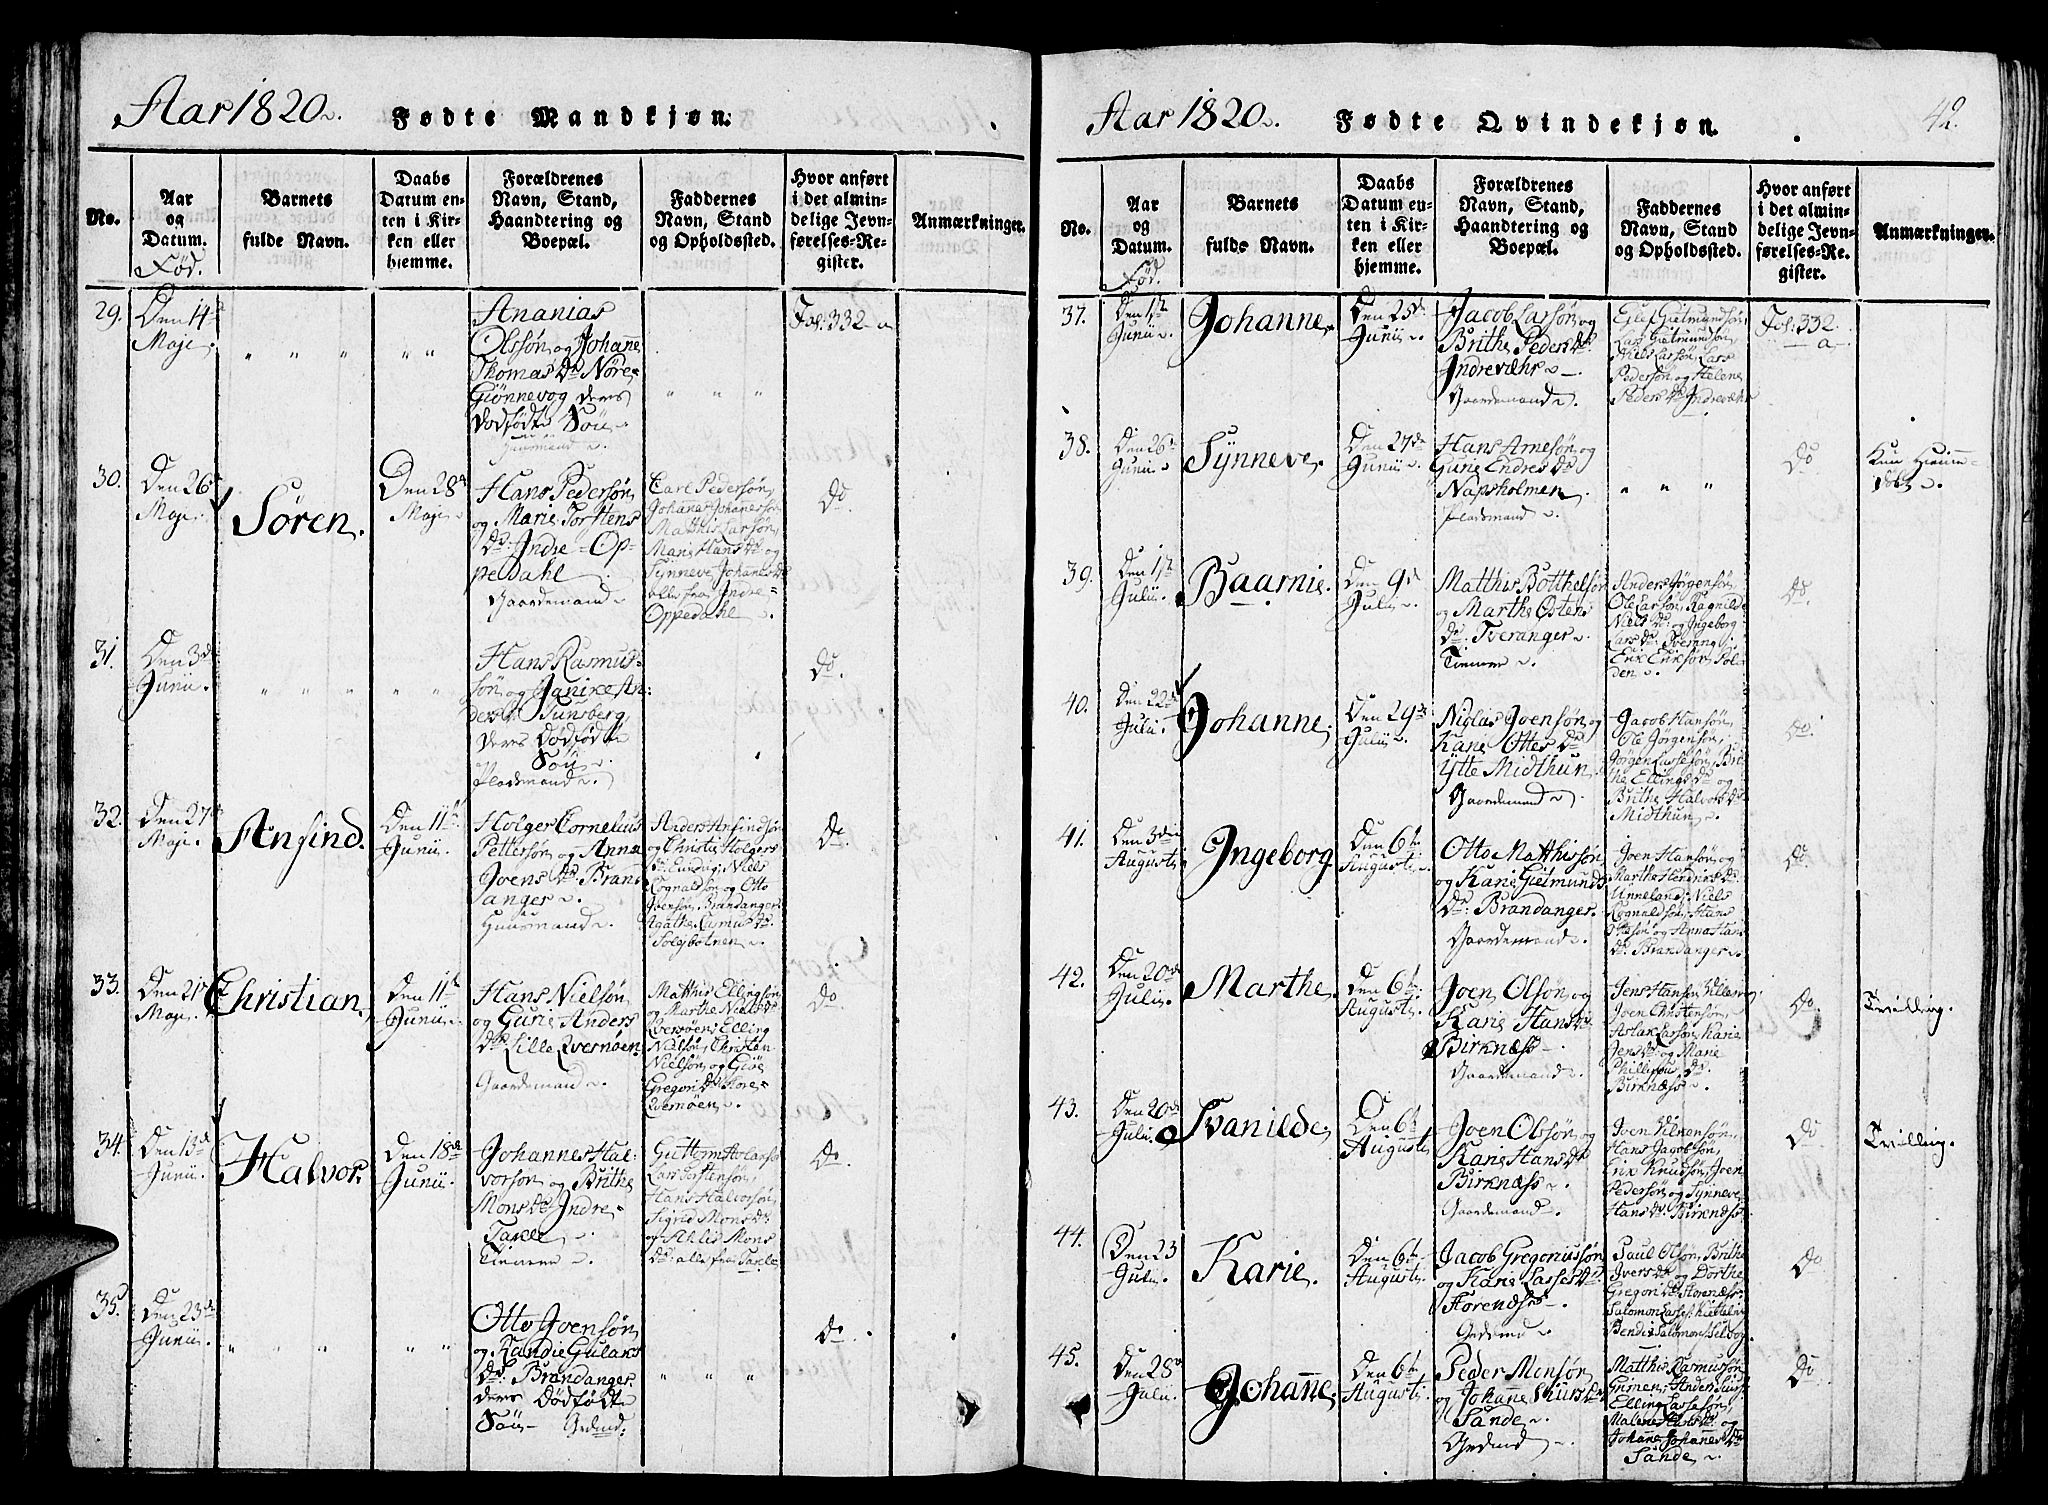 Aar 1820. Fødte Mandkjøn.
No.
Aar
og
Datum.
Fød.
Barnets
fulde Navn.
Daabs
Datum en-
ten i Kir-
ken eller
hjemme.
Forældrenes
Navn, Stand,
Haandtering og
Boepæl.
Faddernes
Navn, Stand
og Opholdssted.
Hvor anført
i det almin-
delige Jevn-
førelses-Re-
gister.
Anmærkninger.
29.
Den 14de
Maje.
" " " " " "
Ananias
Olssøn og Johane
Thomas Dr. Nøre
Giønnevog deres
dødfødte Søn
Huusmand
" " "
Fol: 332 a
30.
Den 26de
Maje.
Søren.
Den 28de
Maje
Hans Pedersøn
og Marie Torstens
Dr. Indre-Op-
pedahl
Gaardemand
Carl Pedersøn,
Johanes Johanessøn
Matthis Larsøn,
Marie Hans Dr. og
Synneve Johanes Dr.
alle fra Indre-
Oppedahl
Do
31.
Den 3de
Junii.
" " " " " "
Hans Rasmus-
søn og Janike An-
ders Dr. Tunsberg
deres Dødfødte
Søn
Pladsmand
Do
32.
Den 27de
Maje.
Anfind.
Den 11te
Junii.
Holger Cornelius
Pettersøn og Anna
Joens Dr. Bran-
anger
Huusmand
Anders Anfindsøn
og Christi Holgers
Niels
Rognaldsøn og Otto
Joensøn, Brandanger
Agathe Rasmus Dr.
Solgbotnen
Do
33.
Den 21de
Maje.
Christian,
Den 11te
Junii.
Hans Nielsøn
og Gurie Anders
Dr. Lille Qvernøen
Gaardemand
Matthis Ellingsøn
og Marthe Niels Dr.
Qversøens Elling
Nielsøn, Christen
Nielsøn og Giøe
Gregori Dr. Store-
Qvernøen
Do
34.
Den 13de
Junii.
Halvor.
Den 18de
Junii.
Johannes Hal-
vorson og Brithe
Mons Dr. Indre-
Takle
Tienere
Guttorm Holarsøn
Lars Torstensøn,
Hans Halvorsøn
Sigrid Mons Dr.
og Ahlis Mons
Dr. alle fra Takle
Do.
35.
Den 23de
Junii.
" " " " "
Otto Joensøn
og Randie Gulaks
Dr. Brandanger
deres Dødfødte
Søn - Grdmd.
" " "
Do.
Aar 1820. Fødte Qvindekjøn.
42.
No.
Aar
og
Datum.
Fød.
Barnets
fulde Navn.
Daabs
Datum en-
ten i Kir-
ken eller
hjemme.
Forældrenes
Navn, Stand,
Haandtering og
Boepæl.
Faddernes
Navn, Stand
og Opholdssted.
Hvor anført
i det almin-
delige Jevn-
førelses-Re-
gister.
Anmærkninger.
37.
Den 1ste
Junii
Johanne.
Den 25de
Junii
Jacob Larssøn og
Brithe Peders Dr.
Indreværhr
Gaardemand
Gietmundsøn,
Lars Gietmundsøn,
Niels Larsøn, Lars
Pedersøn og Helene
Peders Dr. Indreværhr
Fol: 332.
a
38.
Den 26de
Junii
Synneve.
Den 27de
Junii
Hans Arnesøn og
Gurie Endres Dr.
Napsholmen
Pladsmand
" " "
Do
Kun Hiemme-
døbt
39.
Den 1ste
Julii.
Baarnie.
Den 9de
Julii
Matthis Botthelsøn
og Marthe Ostens
Dr. Tveranger
Tienere
Anders Jørgensøn
Ole Larsøn, Ragnilde
Niels Dr. og Ingeborg
Lars Dr. Tverang:
Erik Eriksøn, Sol-
den
Do.
40.
Den 22de
Julii
Johanne.
Den 29de
Julii
Niclas Joensøn og
Karie Ottes Dr.
Ytte Midthun
Gaardemand
Jacob Hansøn,
Ole Jørgensøn,
Jørgen Lassesøn, Bri-
the Ellings Dr. og
Brithe Halvors Dr.
Midthun
Do.
41.
Den 3die
Augusti
Ingeborg
Den 6te
Augusti
Otto Matthissøn
og Karie Gietmunds
Dr. Brandanger.
Gaardemand
Joen Hansøn og
Marthe Hendrics Dr.
Unneland, Niels
Rognaldsøn, Hans
Ottesøn og Anna Hans
Dr. Brandanger
Do.
42.
Den 20de
Julii
Marthe.
Den 6te
Augusti
Joen Olsøn og
Karie Hans Dr.
Birknæss
Gaardemand
Jens Hansøn
Joen Christensøn,
Aslak Larsøn, Karie
Jens Dr. og Marie
Phillipus Dr.
Birknæss
Do.
Tvilling.
43.
Den 20de
Julii
Svanilde,
Den 6te
Augusti
Joen Olssøn og
Karie Hans Dr.
Birknæss
Gaardemand
Joen
Hans Jacobsøn,
Erik Knudsøn, Joen
Pedersøn og Synneve
Hans Dr. Birknæss.
Do
Tvilling.
44.
Den 23
Julii
Karie.
Den 6te
Augusti.
Jacob Gregoriussøn
og Karie Lasses Dr.
Florenæss
Grdmd
Paul Olsøn, Brithe
Ivers Dr. og Dorthe
Gregori Dr. Florenæss.
Salomon
Salomons
Do
45.
Den 28de
Julii
Johanne.
Den 6te
Augusti.
Peder Monsøn
og Johanne Siurs Dr.
Sande
Grdmd
Matthis Rasmussøn
Grinen, Anders
Elling Lassesøn,
Malene Hans Dr. og
Johanne Johannes Dr.
Sande
Do